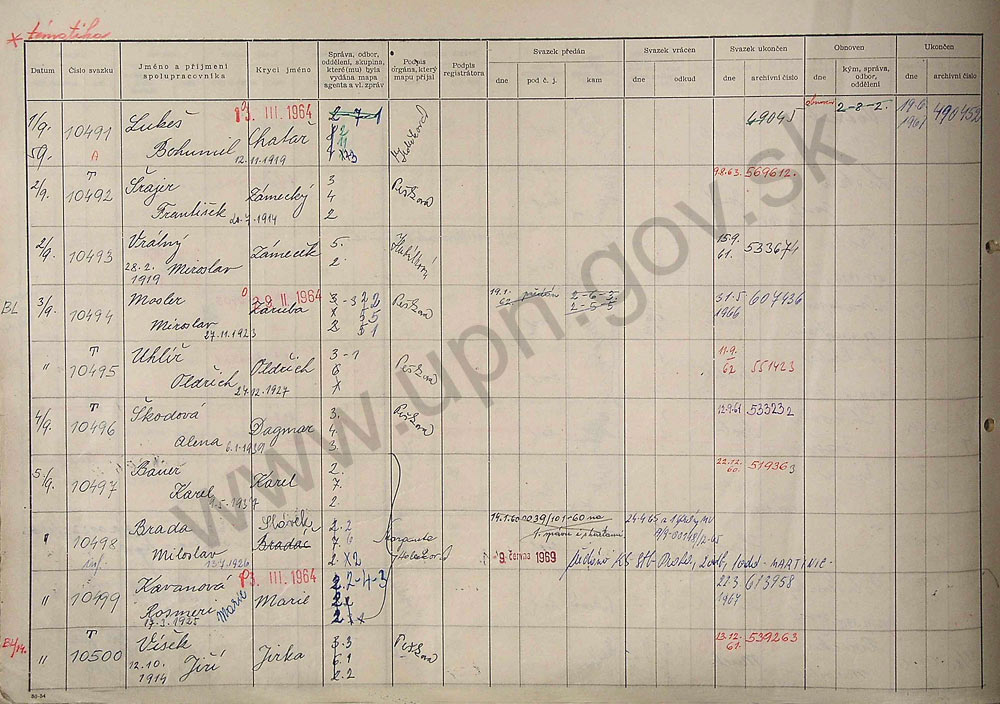 * tématika
Datum
Číslo svazku
Jméno a příjmení
spolupracovníka
Krycí jméno
Správa, odbor,
oddělení, skupina,
které(mu) byla
vydána mapa
agenta a vl. zpráv
Podpis
orgána, který
mapu přijal
Podpis
registrátora
Svazek předán
dne
pod č. j.
kam
Svazek vrácen
dne
odkud
Svazek ukončen
dne
archivní číslo
Obnoven
dne
kým, správa,
odbor,
oddělení
Ukončen
dne
archivní číslo
1/9.
59.
10491
A
Lukeš
Bohumil
12.11.1919
13. III. 1964
Chatař
2-7-1
69045
obnoven
2-8-2.
19.6.
1961
490452
2/9.
T
10492
Šrajer
František
Zámecký
3
4
2
Peškova
9.8.63.
569612.
2/9.
10493
Vrátný
28.2. Miroslav
1919
Zámeček
5.
2
15.9.
61.
533671
BL
3/9.
10494
Mosler
Miroslav
27.11.1923
29. II. 1964
Záruba
Peškova
19.1.
62
předán
2-6-3
2-5-5
31.5
1966
607436
"
T
10495
Uhlíř
Oldřich
27.12.1927
Oldřich
3-1
6
x
Peškova
11.9.
62
551423
4/9.
T
10496
Škodová
Alena
6.1.1939
Dagmar
3.
4.
3.
Peškova
12.9.61
533232
5/9.
10497
Bauer
Karel
9.5.1937
Karel
2.
7.
2
22.12.
60.
519363
"
10498
Brada
Miloslav
13.7.1926
Slávek
Bradáč
2.2
7 6
2. x2
14.1.60
0039/101-60 na
24.4.65
9. června 1969
předáno KS StB Praha, 2.odb, 1odd - MARTINIC -
"
10499
Kavanová
Rosmeri
Marie
17.3.1925
13. III. 1964
Marie
2.2-4-3
22.3
1967
613958
"
T
10500
Víšek
12.10.
1914 Jiří
Jirka
3.3
6.1
2.2
Peškova
13.12.
61.
539263
30-54
www.upn.gov.sk